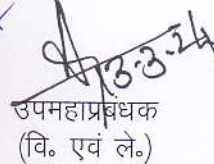 3-3-24
उपमहाप्रबंधक
(वि० एवं ले०)